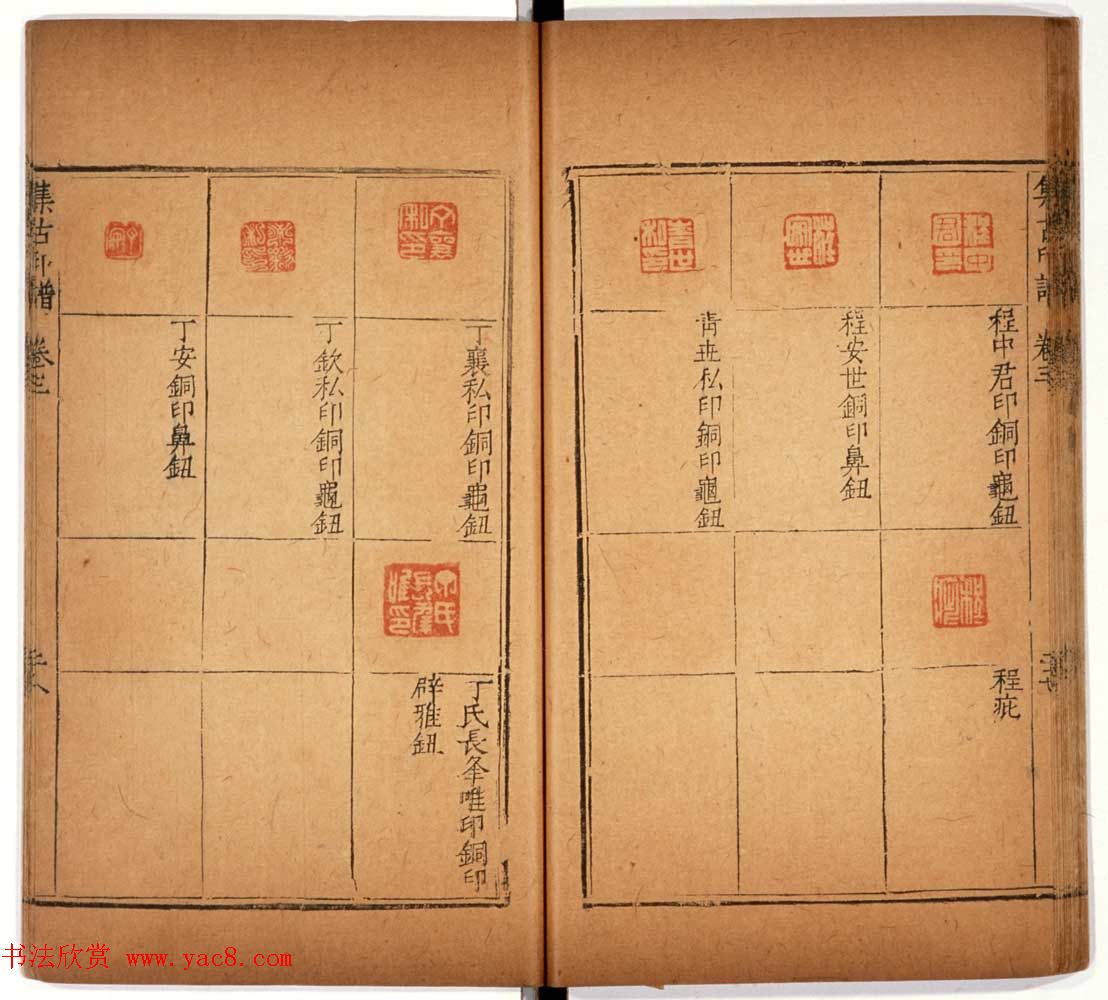 集古印譜 卷三
程中君印銅印龜鈕
程安世銅印鼻鈕
青世私印銅印龜鈕
程疵
丁襄私印銅印龜鈕
丁欽私印銅印龜鈕
丁安銅印鼻鈕
丁氏長年唯印銅印
辟雅鈕
集古印譜 卷三
书法欣赏 www.yac8.com